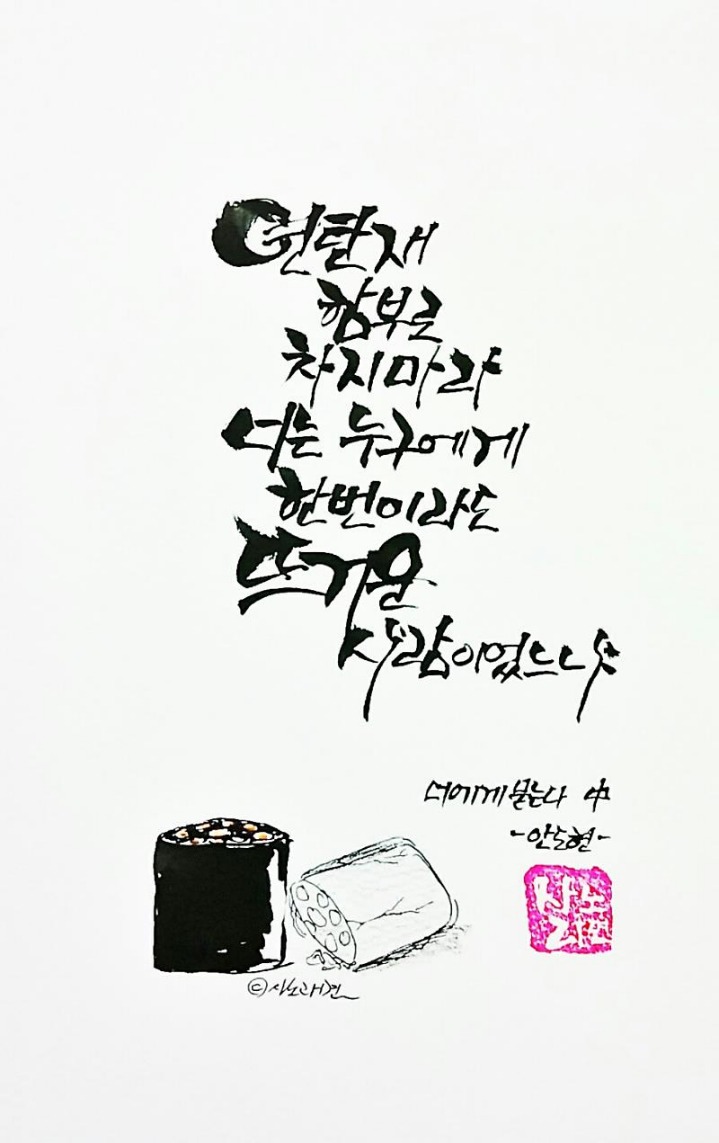 연탄재
함부로
차지마라
너는 누구에게
한번이라도
뜨거운
사람이었느냐
너에게 묻는다 中
-안도현-